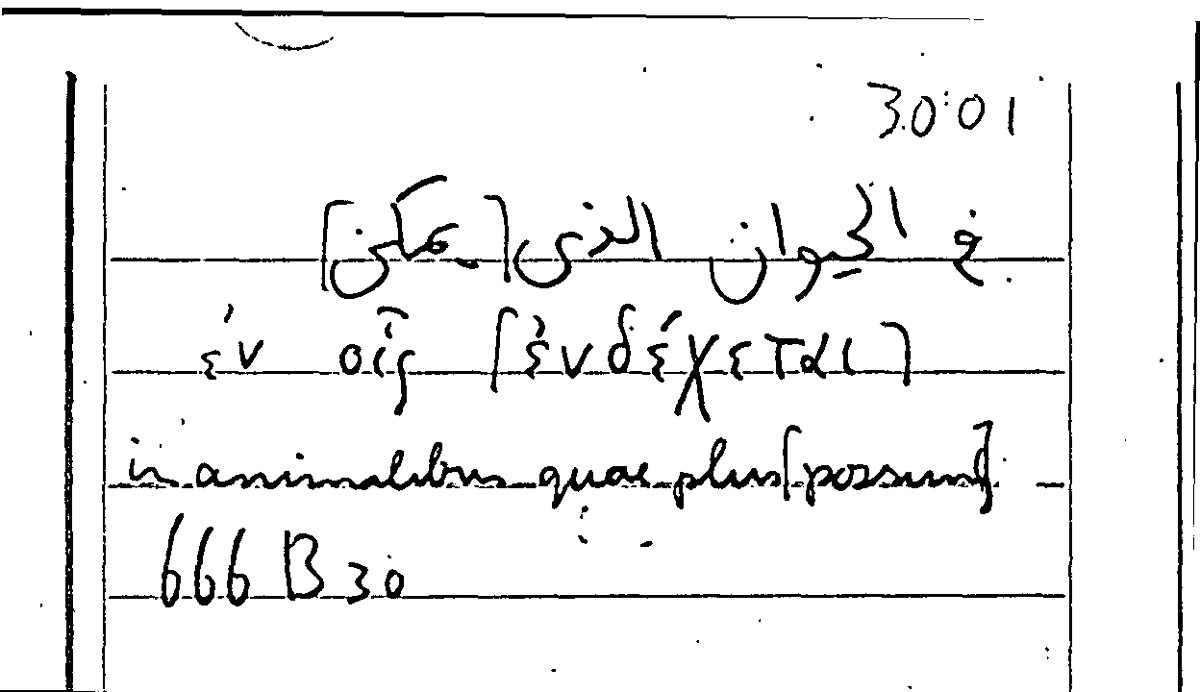 30:01
في الحيوان الذى [يمكن]
ἐν οἷς [ἐνδέχεται]
in animalibus quae plus [possunt]
666 B 30